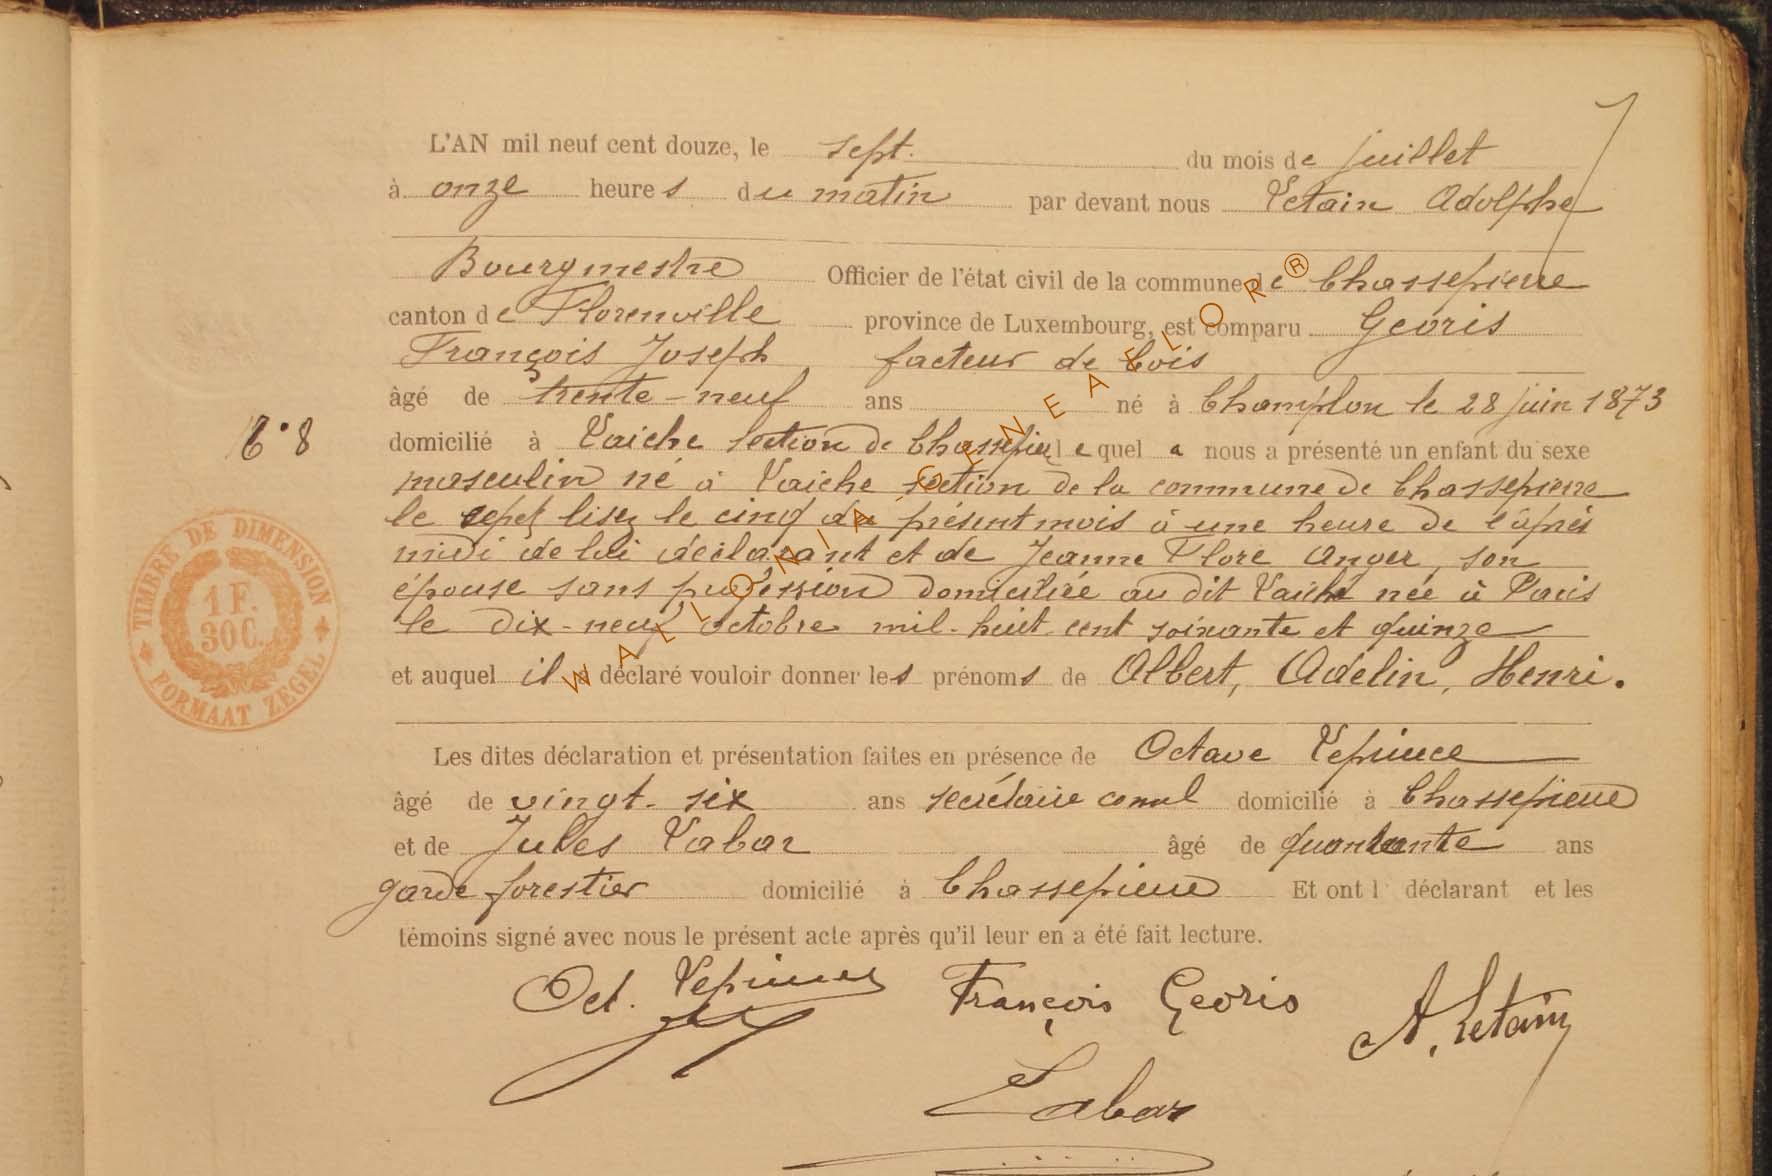 L'AN mil neuf cent douze, le sept. du mois de juillet
à onze heures du matin par devant nous Letain Adolphe
Bourgmestre Officier de l'état civil de la commune de Chassepierre
canton de Florenville province de Luxembourg, est comparu Georis
François Joseph facteur de bois
âgé de trente-neuf ans né à Champlon le 28 juin 1873
N° 8
domicilié à Laiche section de Chassepierre lequel a nous a présenté un enfant du sexe
masculin né à Laiche section de la commune de Chassepierre
le sept lisez le cinq du présent mois à une heure de l'après
midi de lui déclarant et de Jeanne Flore Anger, son
épouse sans profession domiciliée au dit Laiche née à Paris
le dix-neuf octobre mil-huit cent soixante et quinze
et auquel il a déclaré vouloir donner les prénoms de Albert, Adelin, Henri.
Les dites déclaration et présentation faites en présence de Octave Lepince
âgé de vingt-six ans secrétaire comul domicilié à Chassepierre
et de Jules Labar âgé de quarante ans
garde forestier domicilié à Chassepierre Et ont l déclarant et les
témoins signé avec nous le présent acte après qu'il leur en a été fait lecture.
Oct. Lepince François Georis A. Letain
Labar
TIMBRE DE DIMENSION
1 F.
30 C.
FORMAAT ZEGEL
WALLONIA-GENEAELOR®